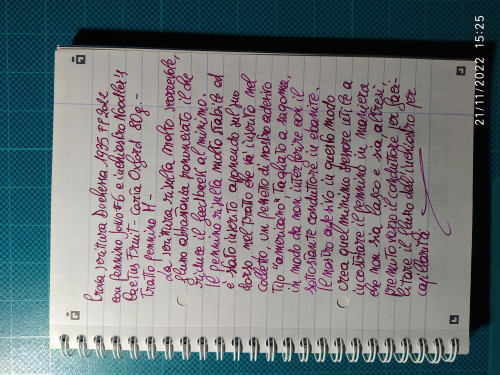 Prova scrittura Duchessa 1935 FP Sole
con pennino JoWo #6 e inchiostro Noodler's
Cactus Fruit - carta Oxford 80g.-
Tratto pennino M-
La scrittura risulta molto scorrevole,
flusso abbastanza pronunciato il che
riduce il feedback al minimo.
Il pennino risulta molto stabile ed
è stato inserito apponendo nel suo
dorso nel tratto che va inserito nel
colletto, un pezzetto di nastro adesivo
tipo "americano" tagliato a sagoma,
in modo da non interferire con il
sottostante conduttore in ebanite.
Il nastro adesivo in questo modo
crea quel minimo spessore atto a
incastrare il pennino in maniera
che non sia lasco e sia altresì
premuto verso il conduttore per faci-
litare il flusso dell'inchiostro per
capillarità
21/11/2022 15:25